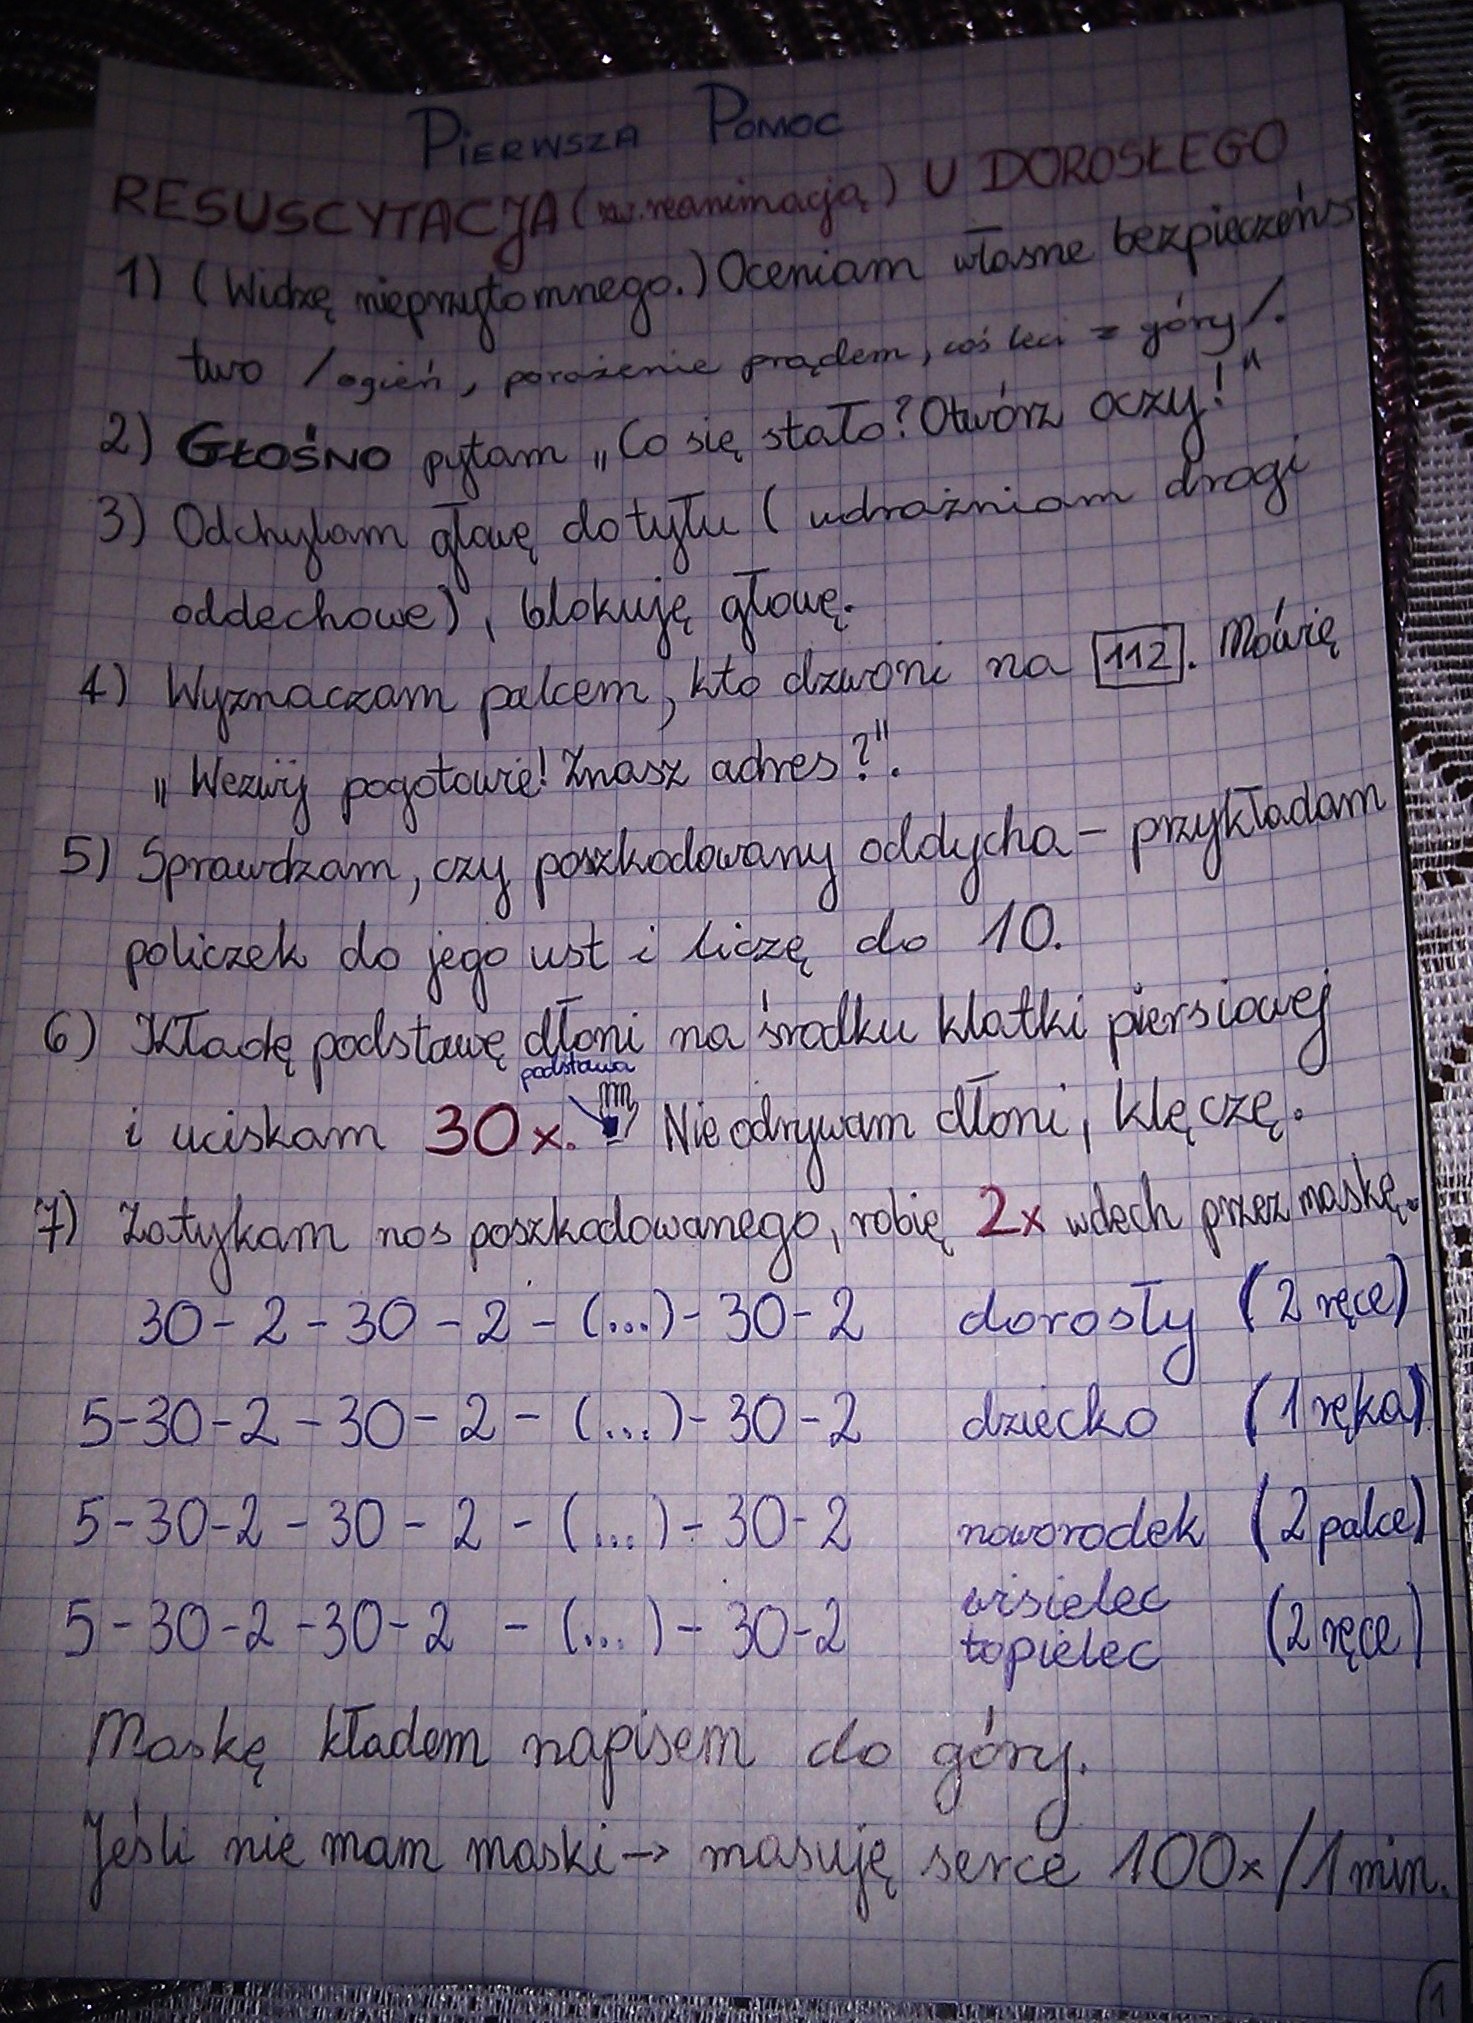 PIERWSZA POMOC
RESUSCYTACJA (zw. reanimacją) U DOROSŁEGO
1) (Widzę nieprzytomnego.) Oceniam własne bezpieczeńs
two /ogień, porażenie prądem, coś leci z góry/.
2) GŁOŚNO pytam „Co się stało? Otwórz oczy!"
3) Odchylam głowę do tyłu (udrażniam drogi
oddechowe), blokuję głowę.
4) Wyznaczam palcem, kto dzwoni na 112. Mówię
„Wezwij pogotowie! Znasz adres?".
5) Sprawdzam, czy poszkodowany oddycha – przykładam
policzek do jego ust i liczę do 10.
6) Kładę podstawę dłoni na środku klatki piersiowej
podstawa
i uciskam 30x. Nie odrywam dłoni, klęczę.
7) Zatykam nos poszkodowanego, robię 2x wdech przez maskę.
30 - 2 - 30 - 2 - (...) - 30 - 2 dorosły (2 ręce)
5 - 30 - 2 - 30 - 2 - (...) - 30 - 2 dziecko (1 ręka)
5 - 30 - 2 - 30 - 2 - (...) - 30 - 2 noworodek (2 palce)
5 - 30 - 2 - 30 - 2 - (...) - 30 - 2 wisielec topielec (2 ręce)
Maskę kładem napisem do góry.
Jeśli nie mam maski → masuję serce 100x/1 min.
1